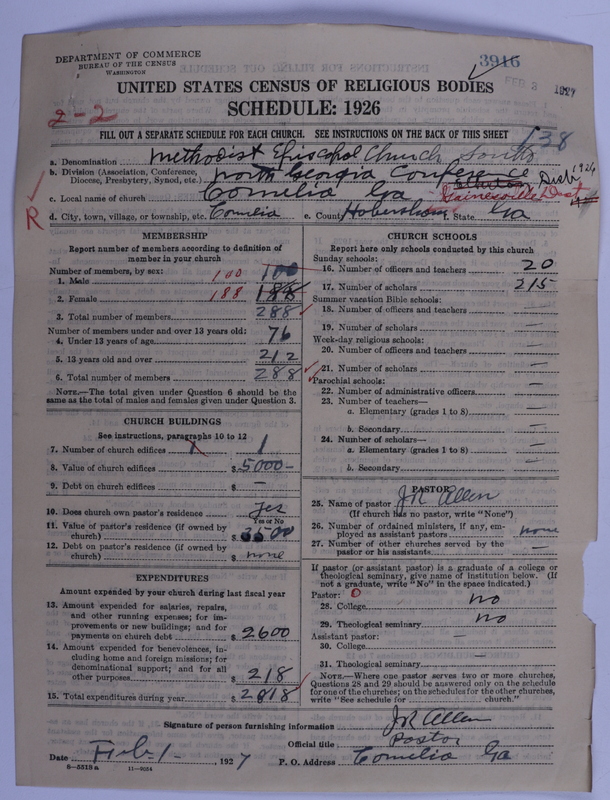 DEPARTMENT OF COMMERCE
BUREAU OF THE CENSUS
WASHINGTON
3916
FEB 2 1927
UNITED STATES CENSUS OF RELIGIOUS BODIES
SCHEDULE: 1926
2-2
138
FILL OUT A SEPARATE SCHEDULE FOR EACH CHURCH. SEE INSTRUCTIONS ON THE BACK OF THIS SHEET
a. Denomination Methodist Episcopal Church South
b. Division (Association, Conference, Diocese, Presbytery, Synod, etc.) North Georgia Conference
Dist 1926
Gainesville Dist
c. Local name of church Cornelia Ga
R
d. City, town, village, or township, etc. Cornelia e. County Habersham State Ga
MEMBERSHIP
Report number of members according to definition of member in your church
Number of members by sex:
1. Male 100 100
2. Female 188 188
3. Total number of members 288
Number of members under and over 13 years old:
4. Under 13 years of age 76
5. 13 years old and over 212
6. Total number of members 288
NOTE.—The total given under Question 6 should be the same as the total of males and females given under Question 3.
CHURCH BUILDINGS
See instructions, paragraphs 10 to 12
7. Number of church edifices 1 1
8. Value of church edifices $ 5000-
9. Debt on church edifices $ —
10. Does church own pastor's residence? yes
Yes or No
11. Value of pastor's residence (if owned by church) $ 3500
12. Debt on pastor's residence (if owned by church) $ none
EXPENDITURES
Amount expended by your church during last fiscal year
13. Amount expended for salaries, repairs, and other running expenses; for improvements or new buildings; and for payments on church debt $ 2600
14. Amount expended for benevolences, including home and foreign missions; for denominational support; and for all other purposes $ 218
15. Total expenditures during year $ 2818
CHURCH SCHOOLS
Report here only schools conducted by this church
Sunday schools:
16. Number of officers and teachers 20
17. Number of scholars 215
Summer vacation Bible schools:
18. Number of officers and teachers —
19. Number of scholars —
Week-day religious schools:
20. Number of officers and teachers —
21. Number of scholars —
Parochial schools:
22. Number of administrative officers —
23. Number of teachers—
a. Elementary (grades 1 to 8) —
b. Secondary —
24. Number of scholars—
a. Elementary (grades 1 to 8) —
b. Secondary —
PASTOR
25. Name of pastor J R Allen
(If church has no pastor, write "None")
26. Number of ordained ministers, if any, employed as assistant pastors none
27. Number of other churches served by the pastor or his assistants —
If pastor (or assistant pastor) is a graduate of a college or theological seminary, give name of institution below. (If not a graduate, write "No" in the space indicated.)
Pastor: 0
28. College no
29. Theological seminary no
Assistant pastor: —
30. College
31. Theological seminary —
NOTE.—Where one pastor serves two or more churches, Questions 28 and 29 should be answered only on the schedule for one of the churches; on the schedules for the other churches, write "See schedule for church."
Signature of person furnishing information J R Allen
Official title Pastor
Date Feb. 1 - , 1927 P. O. Address Cornelia Ga
8—5518a 11—9024